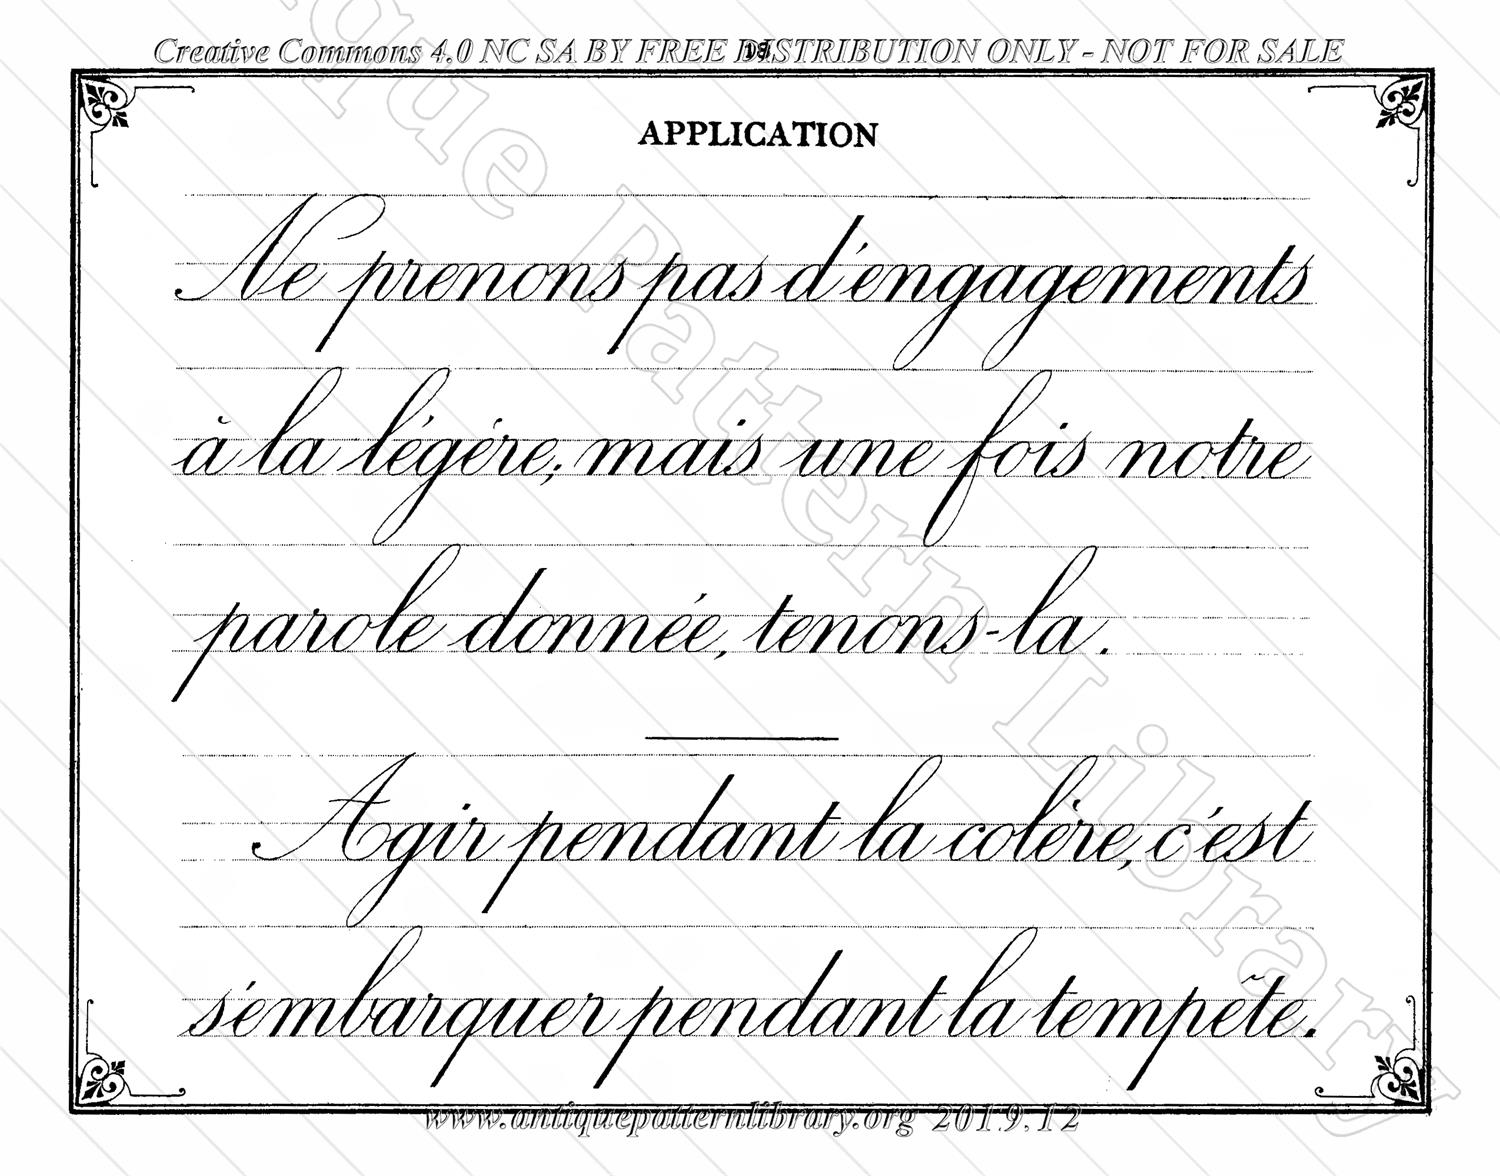 Creative Commons 4.0 NC SA BY FREE DISTRIBUTION ONLY - NOT FOR SALE
APPLICATION
Ne prenons pas d'engagements
à la légère; mais une fois notre
parole donnée, tenons-la.
Agir pendant la colère, c'est
s'embarquer pendant la tempête.
www.antiquepatternlibrary.org 2019.12
Antique Pattern Library